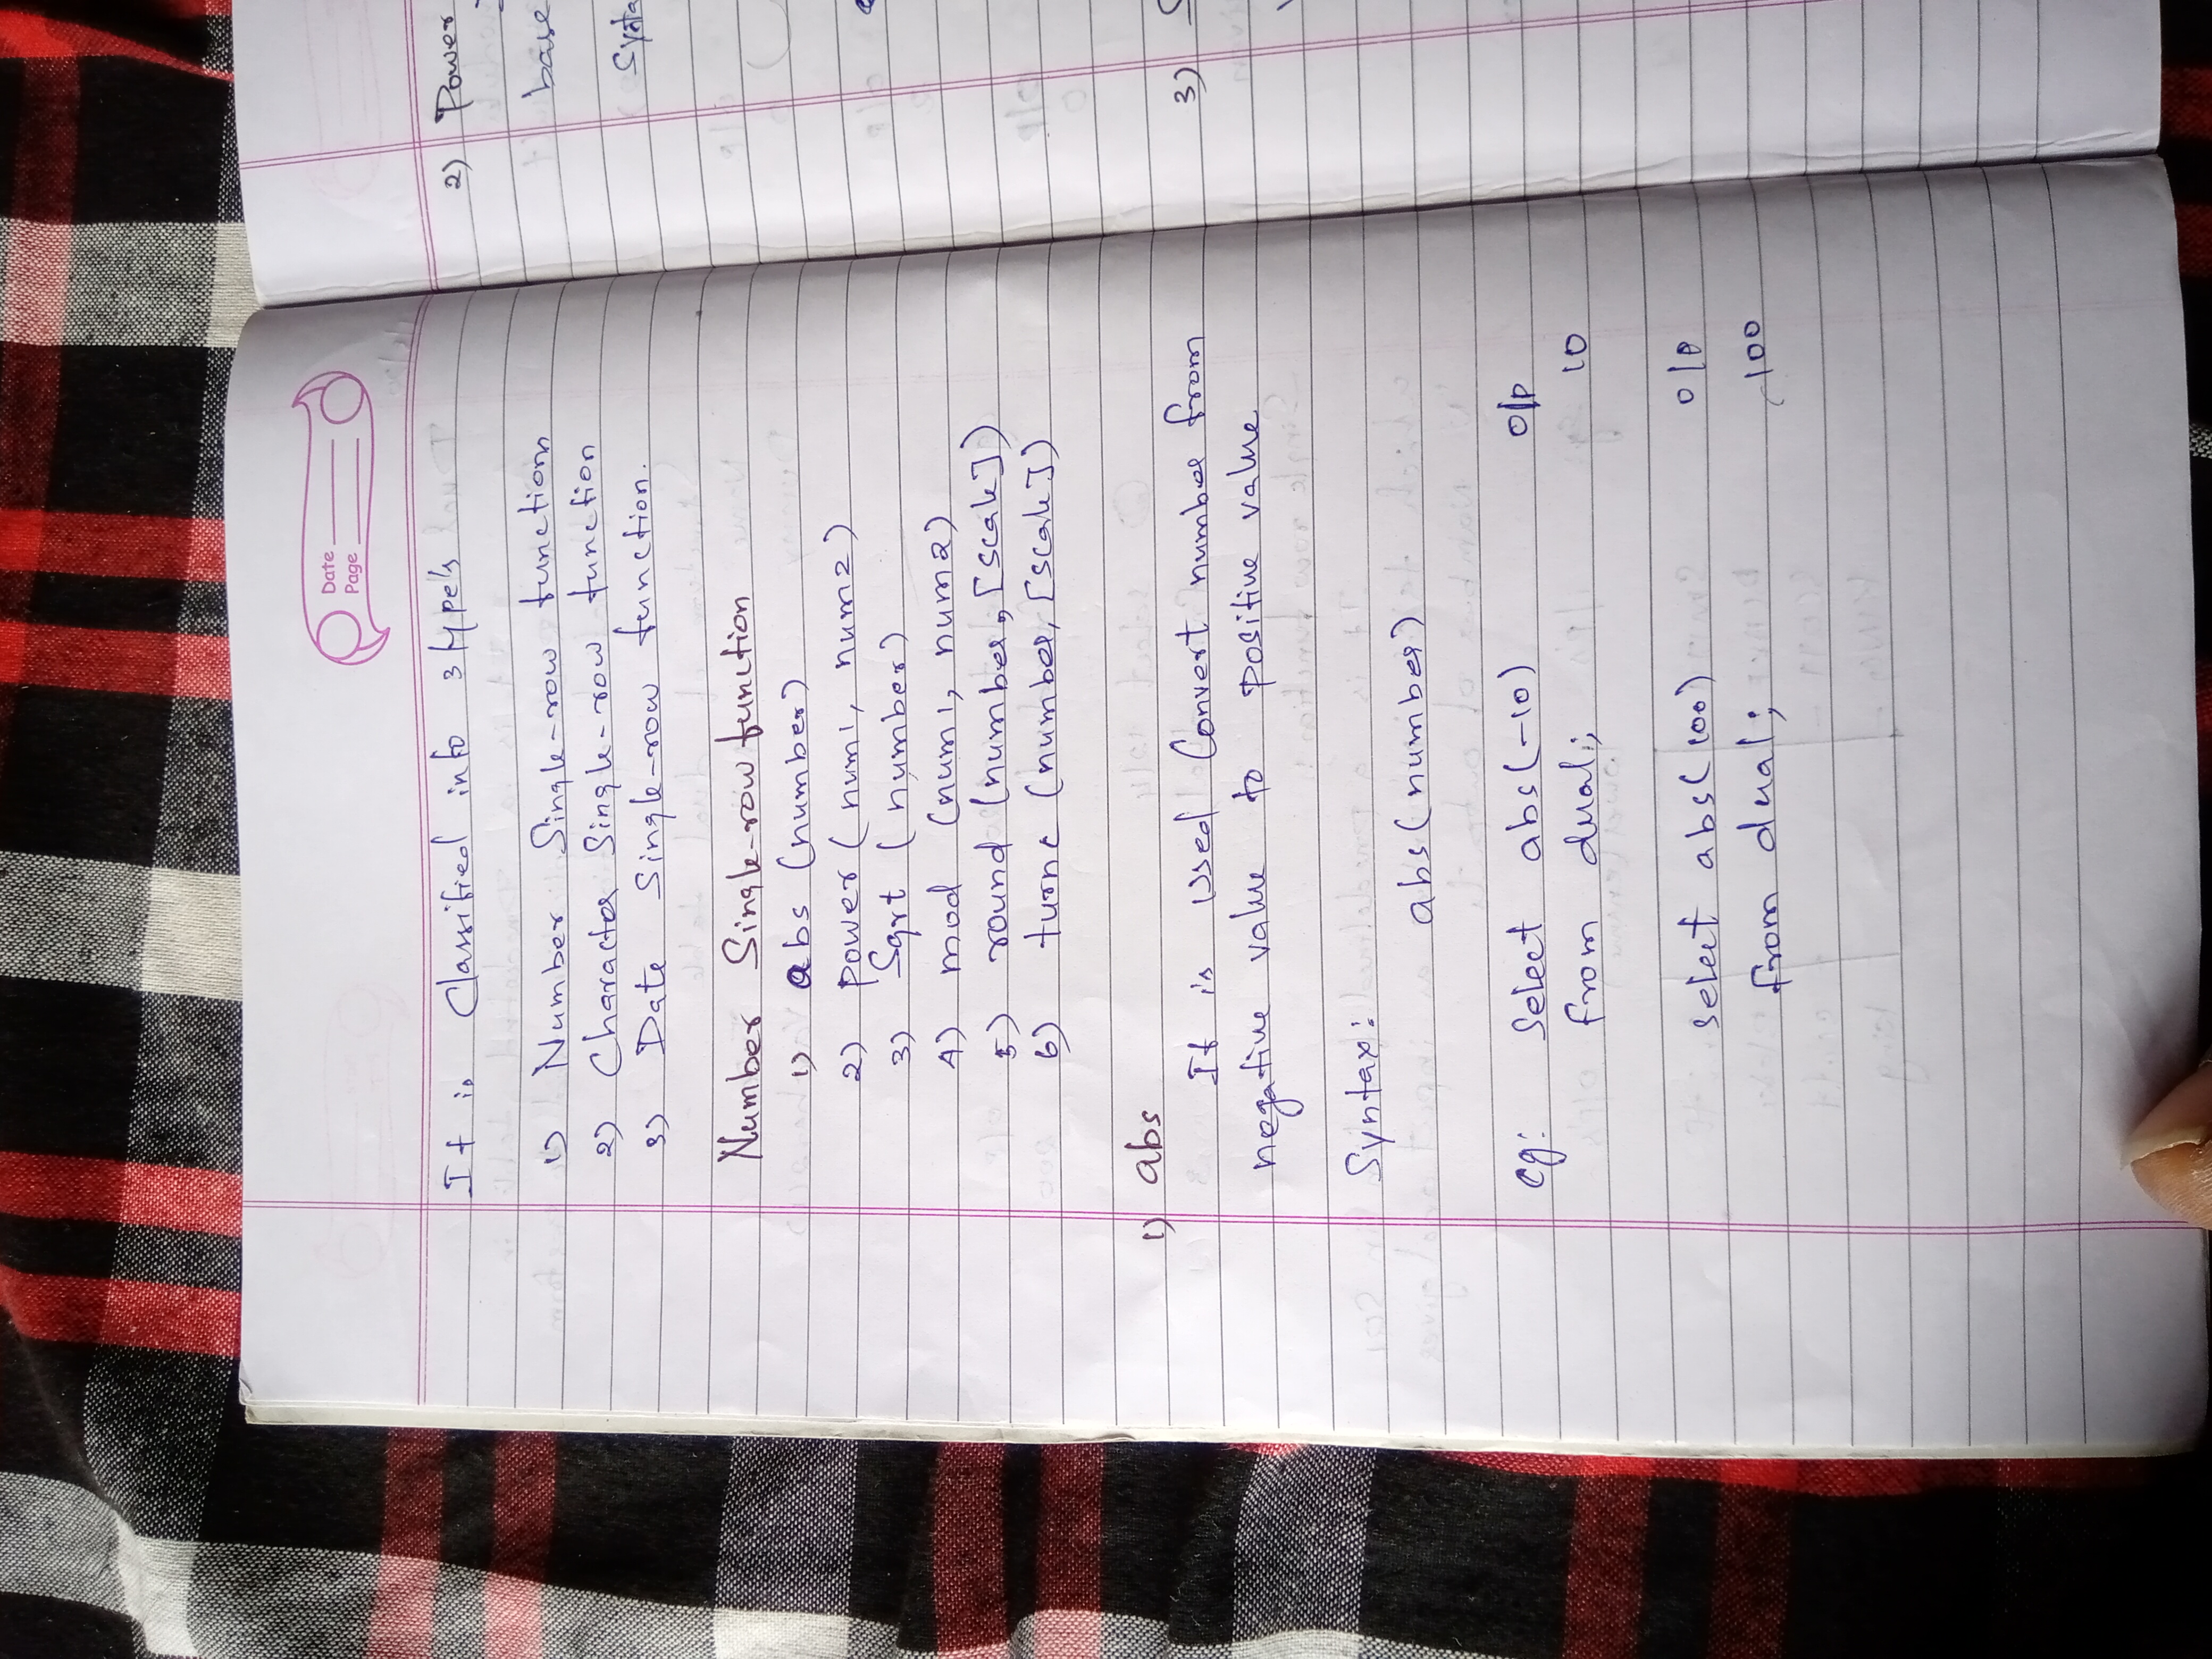 Date
Page
It is Classified into 3 types
1) Number Single-row function
2) Character Single-row function
3) Date Single-row function.
Number Single-row function
1) abs (number)
2) power (num1, num2)
3) Sqrt (number)
4) mod (num1, num2)
5) round (number, [scale])
6) turnc (number, [scale])
1) abs
It is Used Convert number from
negative value to positive value
Syntax:
abs(number)
eg: Select abs(-10) o/p
from dual; 10
select abs(100) o/p
from dual; 100
2) Power
base
3)